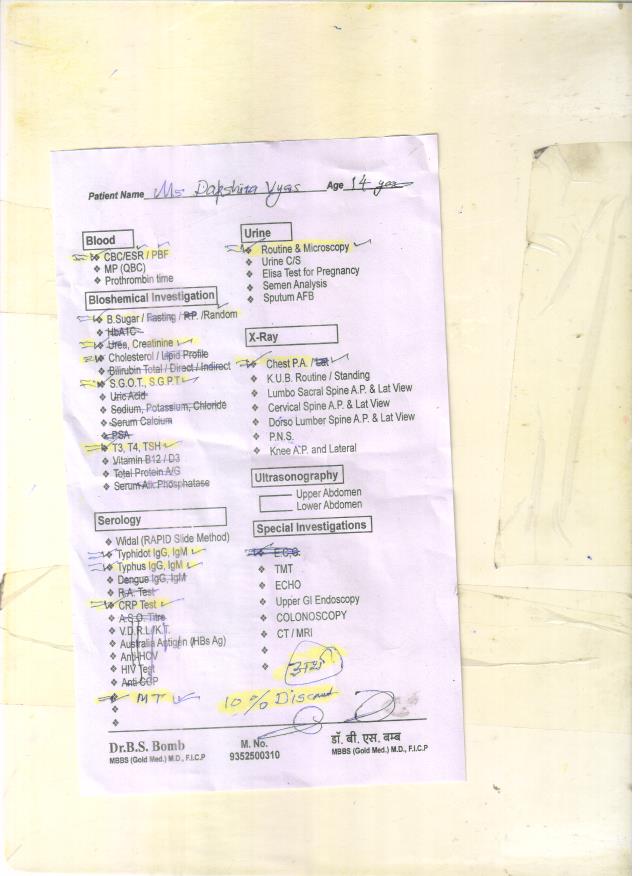 Patient Name Ms Dakshina Vyas Age 14 yea
Blood
❖ CBC/ESR / PBF
❖ MP (QBC)
❖ Prothrombin time
Bioshemical Investigation
❖ B.Sugar / Fasting / P.P. /Random
❖ HbA1C
❖ Urea, Creatinine
❖ Cholesterol / Lipid Profile
❖ Bilirubin Total / Direct / Indirect
❖ S.G.O.T., S.G.P.T
❖ Uric Acid
❖ Sodium, Potassium, Chloride
❖ Serum Calcium
❖ PSA
❖ T3, T4, TSH
❖ Vitamin B12 / D3
❖ Total Protein A/G
❖ Serum Alk Phosphatase
Serology
❖ Widal (RAPID Slide Method)
❖ Typhidot IgG, IgM
❖ Typhus IgG, IgM
❖ Dengue IgG, IgM
❖ R.A. Test
❖ CRP Test
❖ A.S.O. Titre
❖ V.D.R.L/K.T.
❖ Australia Antigen (HBs Ag)
❖ Anti-HCV
❖ HIV Test
❖ Anti CCP
❖ MT
Urine
❖ Routine & Microscopy
❖ Urine C/S
❖ Elisa Test for Pregnancy
❖ Semen Analysis
❖ Sputum AFB
X-Ray
❖ Chest P.A. /
❖ K.U.B. Routine / Standing
❖ Lumbo Sacral Spine A.P. & Lat View
❖ Cervical Spine A.P. & Lat View
❖ Dorso Lumber Spine A.P. & Lat View
❖ P.N.S.
❖ Knee A.P. and Lateral
Ultrasonography
Upper Abdomen
Lower Abdomen
Special Investigations
❖ E.C.G.
❖ TMT
❖ ECHO
❖ Upper GI Endoscopy
❖ COLONOSCOPY
❖ CT / MRI
10 % Discount
Dr.B.S. Bomb
MBBS (Gold Med.) M.D., F.I.C.P
M. No.
9352500310
डॉ. बी. एस. बम्ब
MBBS (Gold Med.) M.D., F.I.C.P